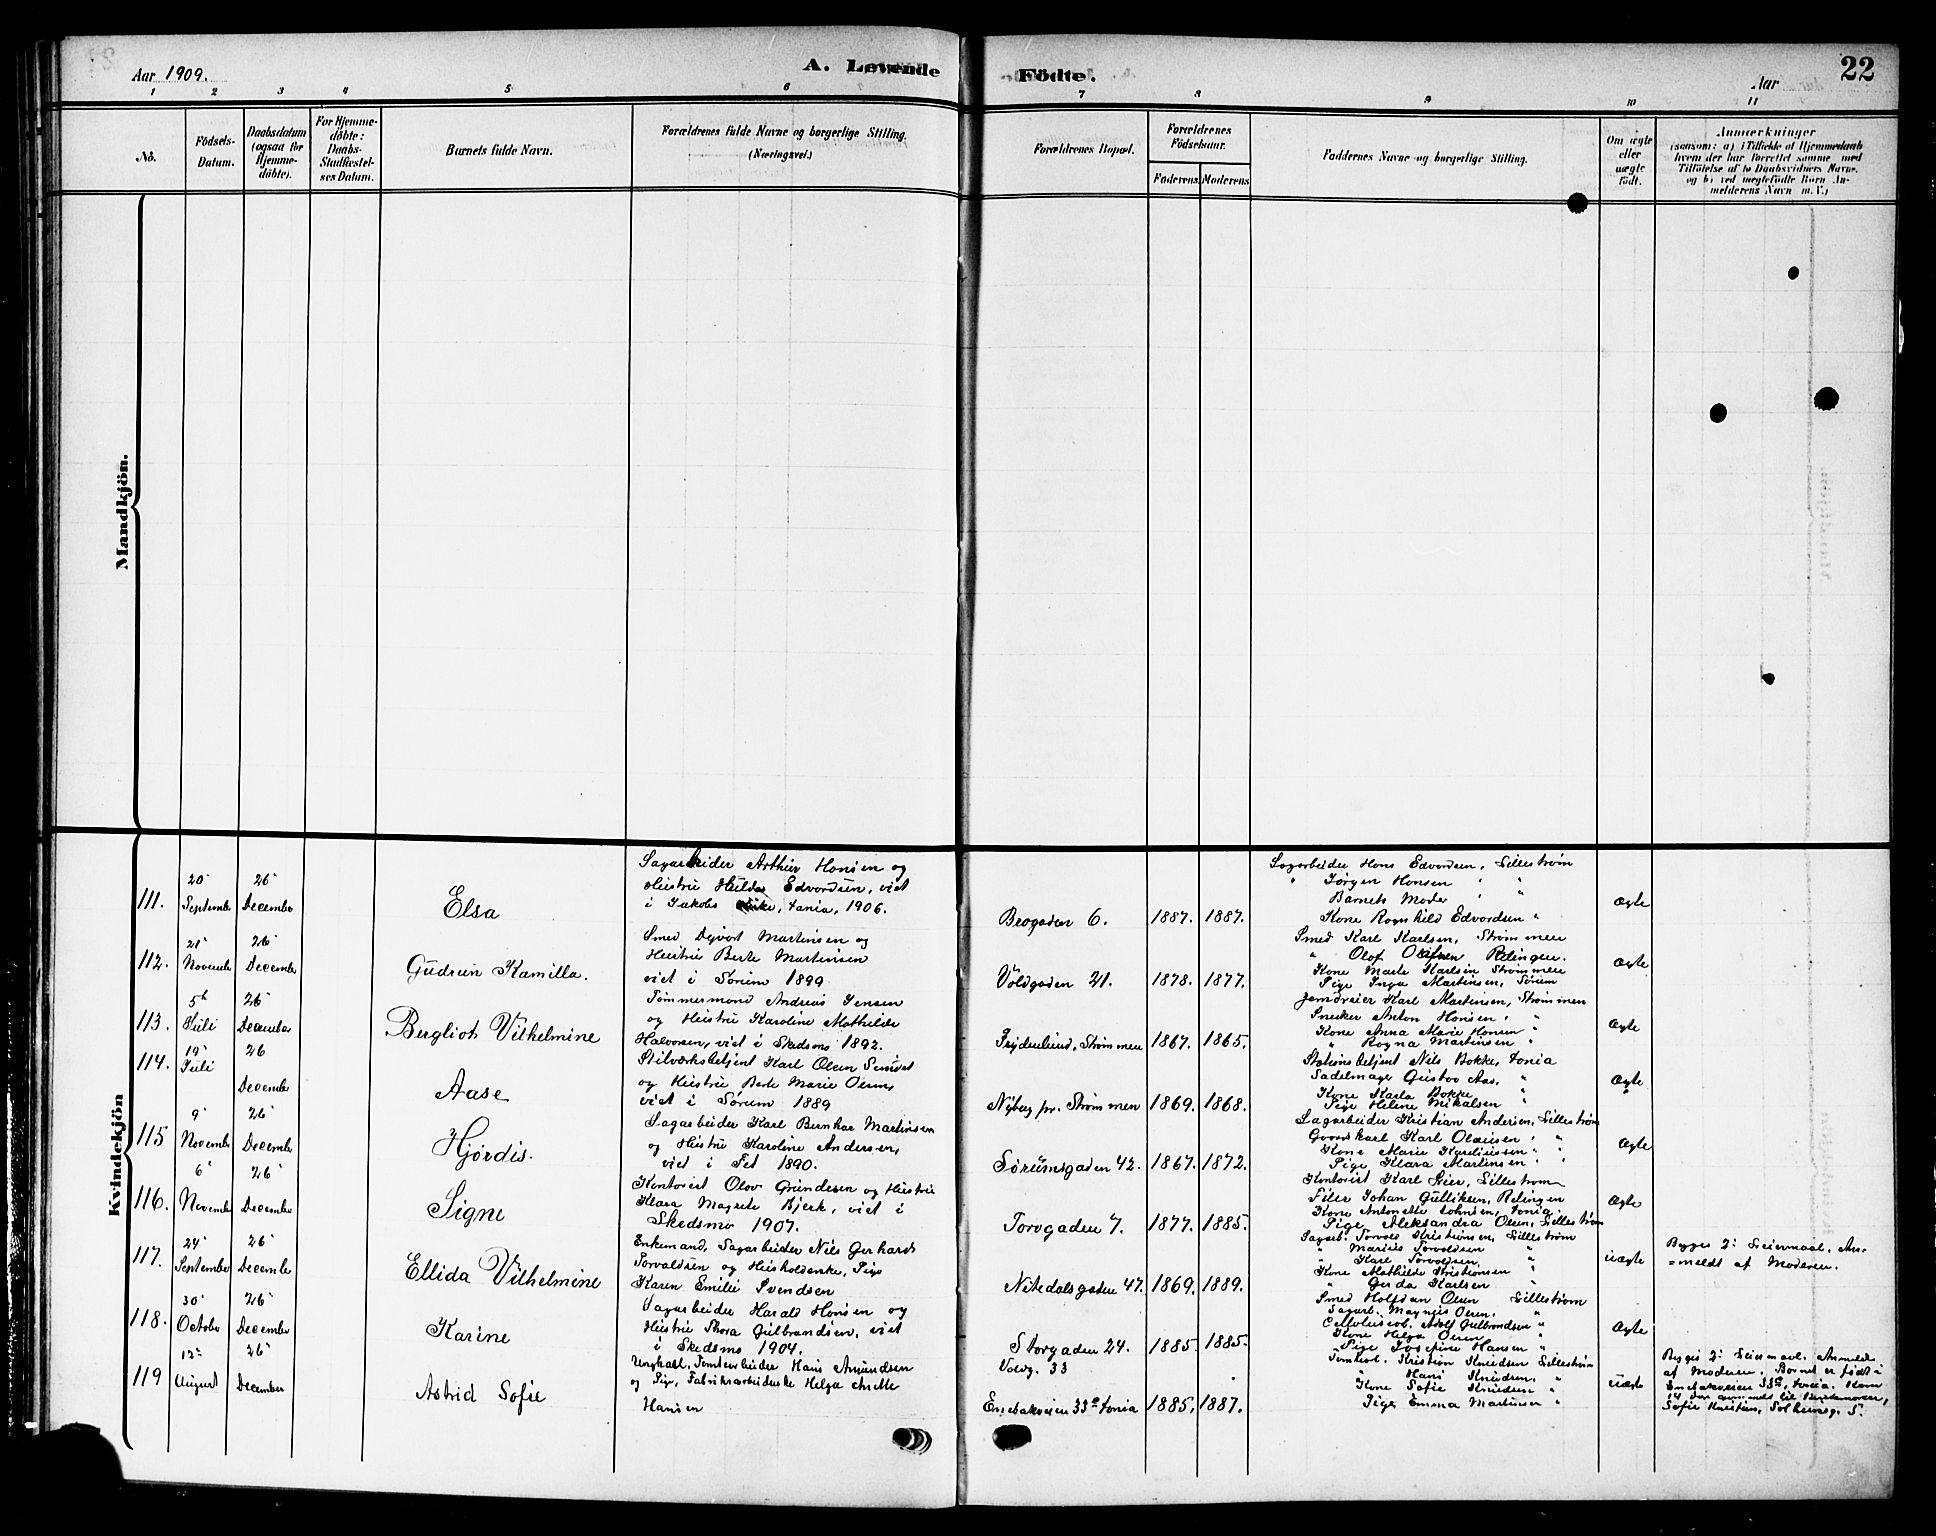 Aar 1909.
A. Levende
Födte.
Aar
22
1 2 3 4 5 6 7 8 9 10 11
No.
Födsels-
Datum.
Daabsdatum
(ogsaa for
Hjemme-
döbte).
For Hjemme-
döbte:
Daabs-
Stadfæstel-
ses Datum.
Barnets fulde Navn.
Forældrenes fulde Navne og borgerlige Stilling.
(Næringsvei.)
Forældrenes Bopæl.
Forældrenes
Födselsaar.
Faderens
Moderens
Faddernes Navne og borgerlige Stilling.
Om ægte
eller
uægte
födt.
Anmærkninger
(saasom: a) i Tilfælde af Hjemmedaab
hvem der har forrettet samme, med
Tilföielse af to Daabsvidners Navne,
og b) ved uægtefödte Börn An-
melderens Navn m. V.)
Mandkjön.
Kvindekjön
111.
20
September
26
December
Elsa
Sagarbeider Arthur Hansen og
Hustru Hulda Edvardsen, viet
i Jakobs Kirke, 1906.
Brogaden 6.
1887.
1887.
Sagarbeider Hans Edvardsen, Lillestrøm
" Jørgen Hansen " "
Barnets Moder "
Kone Ragnhild Edvardsen "
Ægte
112.
21
November
26
December
Gudrun Kamilla.
Smed Martinsen og
Hustru Berte Martinsen
viet i Sørum 1899
Voldgaden 21.
1878.
1877.
Smed Karl Karlsen, Strømmen
" Olaf Olafsen Relingen.
Kone Marte Karlsen Strømmen
Pige Inga Martinsen, Sørum
Ægte
113.
5
Juli
26
December
Bergliot Vilhelmine
Tømmermand Andreas Jensen
og Hustru Karoline Mathilde
Halvorsen, viet i Skedsmo 1892.
Frydenlund, Strømmen
1867.
1865.
Karl Martinsen, Strømmen
Snecker Anton Hansen, "
Kone Anna Marie Hansen "
" Ragna Martinsen "
Ægte
114.
19
Juli
26
December
Aase
Karl Olsen
og Hustru Berte Marie Olsen,
viet i Sørum 1889
Nyberg pr. Strømmen
1869.
1868.
Stationsbetjent Nils Bakke,
Sadelmager Gustav Aas, "
Kone Karla Bakke "
Pige Helene Mikalsen "
Ægte
115
9
November
26
December
Hjørdis.
Sagarbeider Karl Bernhar Martinsen
og Hustru Karoline Andersen,
viet i Fet 1890.
Sørumsgaden 42.
1867.
1872.
Sagarbeider Kristian Andersen, Lillestrøm
Gaardskarl Karl Olausen " "
Kone Marie Kareliussen " "
Pige Klara Martinsen " "
Ægte
116.
6
November
26
December
Signe
Kontorist Olav Gundersen og Hustru
Klara Magrete Bjerk, viet i
Skedsmo 1907.
Torvgaden 7.
1877.
1885.
Kontorist Karl Lier, Lillestrøm
Filer Johan Gulliksen, Relingen
Kone Antonette Johnsen,
Pige Aleksandra Olsen, Lillestrøm
Ægte
117.
24
September
26
December
Ellida Vilhelmine
Enkemand, Sagarbeider Nils Gerhard
Torvaldsen og Husholderske, Pige
Karen Emilie Svendsen
Nitedalsgaden 47.
1869.
1889.
Sagarb. Torvald Kristiansen, Lillestrøm
" Marius Torvaldsen "
" Karl Torvaldsen "
Kone Mathilde Kristiansen "
" Gerda Karlsen "
uægte
Begges 2. Leiermaal. An-
=meldt af Moderen.
118.
30
October
26
December
Karine
Sagarbeider Harald Hansen og
Hustru Thora Gulbrandsen, viet
i Skedsmo 1904.
Storgaden 24.
1885.
1885.
Smed Halfdan Olsen Lillestrøm
Sagarb. Magnus Olsen, "
Adolf Gulbrandsen "
Kone Helga Olsen "
Pige Josefine Hansen "
Ægte
119
12
August
26
December
Astrid Sofie
Ungkarl, Tomtearbeider Hans Amundsen
og Pige, Fabrikarbeiderske Helga Anette
Hansen
Voldg. 33
Enebakveien 33
1885.
1887.
Tomtearb. Kristian Knudsen Lillestrøm
" Hans Knudsen, "
Kone Sofie Knudsen "
Pige Emma Martinsen "
uægte
Begges 2. Leiermaal. Anmeldt
af Moderen. Barnet er født i
Enebakveien
Sofie